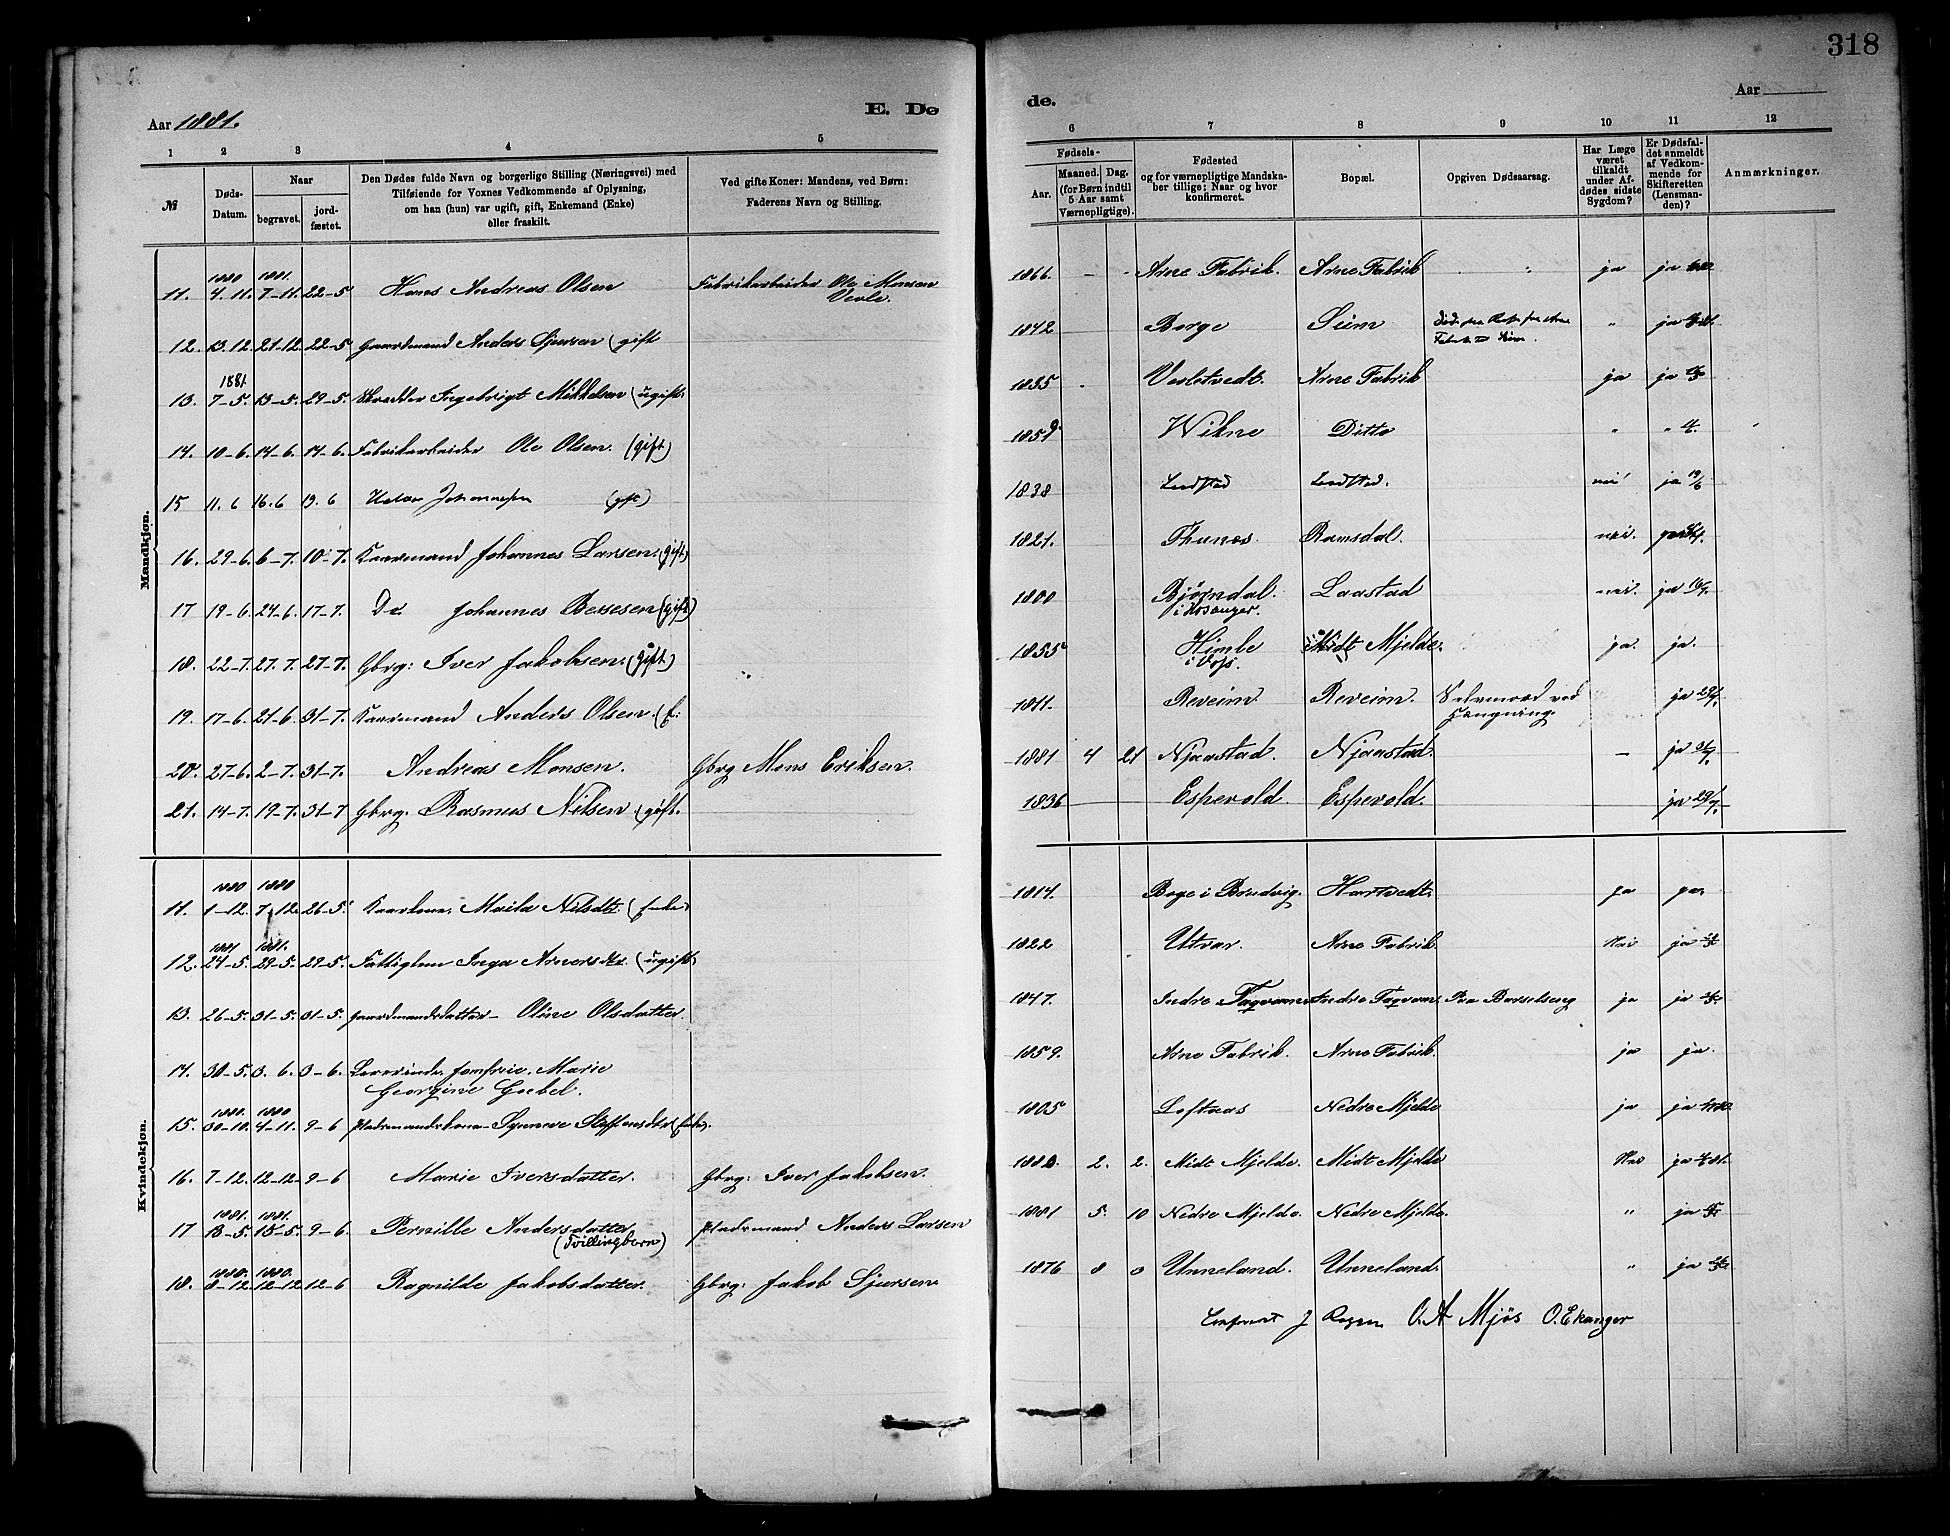 318
Aar 1881.
E. Dø
de.
Aar
1 2 3 4 5
6 7 8 9 10 11 12
№
Døds-Datum.
Naar
begravet.
jord-fæstet.
Den Dødes fulde Navn og borgerlige Stilling (Næringsvei) med
Tilføiende for Voxnes Vedkommende af Oplysning,
om han (hun) var ugift, gift, Enkemand (Enke)
eller fraskilt.
Ved gifte Koner: Mandens, ved Børn:
Faderens Navn og Stilling.
Fødsels-
Aar.
Maaned. Dag.
(for Børn indtil
5 Aar samt
Værnepligtige).
Fødested
og for værnepligtige Mandska-
ber tillige: Naar og hvor
konfirmeret.
Bopæl.
Opgiven Dødsaarsag.
Har Læge
været
tilkaldt
under Af-
dødes sidste
Sygdom?
Er Dødsfal-
det anmeldt
af Vedkom-
mende for
Skifteretten
(Lensman-
den)?
Anmærkninger.
Mandkjøn.
1880 1881.
11. 4-11. 7-11. 22-5 Hans Andreas Olsen Fabrikarbeider Ole Monsen 1866. Arne Fabrik. Arne Fabrik ja ja
12. 13-12. 21-12. 22-5 Gaardmand Anders Sjursen (gift 1842 Borge " ja
1881.
13. 7-5. 13-5. 29-5. Skrædder Ingebrigt Mikkelsen (ugift. 1835 Arne Fabrik ja ja
14. 10-6. 14-6. 14-6. Fabrikarbeider Ole Olsen. (gift) Wikne Ditto " "
15 11. 6 16. 6 19. 6 Johannesen (gft) 1838 nei ja 19/6
16. 29-6. 6-7. 10-7. Kaarmand Johannes Larsen. (gift) 1821. Thunæs Ramsdal. nei.
17 19-6. 24-6. 17-7. Do Johannes Bessesen (gift) 1800 Bjørndal. Laastad nei. ja
i Hosanger.
18. 22-7. 27. 7. 27-7. Gbrg: Iver Jakobsen. (gift) 1855 Himle Midt Mjelde. ja. ja.
i Vos.
19. 17-6. 21-6. 31-7. Kaarmand Anders Olsen. (f: 1811. Reveim. Reveim. Selvmord ved ja
Hængning.
20. 27-6. 2-7. 31-7. Andreas Monsen. Gbrg Mons Eriksen. 1881 4 21 Njaastad. Njaastad. — ja
21. 14-7. 19-7. 31-7 Gbrg. Rasmus Nilsen (gift. 1836 Espevold. Espevold. ja
Kvindekjøn.
1880 1880
11. 1-12. 7-12. 26-5. Kaarkone. Maila Nilsdtr. 1814. Borge i Bruvig. Hartvedt. ja ja
1881. 1881.
12. 24-5. 29-5. 29-5. Fattiglem Inga Arnersdtr. (ugift) 1822 Utvær. Arne Fabrik Nei ja
13. 26-5. 31-5. 31-5. Gaardmandsdatter - Oline Olsdatter. 1847. Indre Tagvam Indre Tagvam. Paa Barselseng ja ja
14. 30-5. 3. 6. 3-6. Lærerinde, Jomfrue. Marie 1859. Arne Fabrik. Arne Fabrik. ja ja.
Georgine Goebel.
1880. 1880
15. 30-10. 4-11. 9-6 Pladsmandskone - Synneve Steffensdtr 1805 Loftaas Nedre Mjelde ja ja
16. 7-12. 12-12. 9-6 Marie Iversdatter. Gbrg: Iver Jakobsen. 1880. 2. 2. Midt Mjelde. Midt Mjelde Nei ja
1881. 1881.
17 13-5. 15-5. 9-6 Pernille Andersdatter Pladsmand Anders Larsen 1881 5. 10 Nedre Mjelde. Nedre Mjelde. " ja
(Tvillingbarn)
1880. 1880.
18. 8-12. 12-12 12-6 Ragnilde Jakobsdatter. Gbrg: Jakob Sjursen 1876 8 0 Unneland. Unneland. " ja
Confereret J O. A Mjøs O. Ekanger